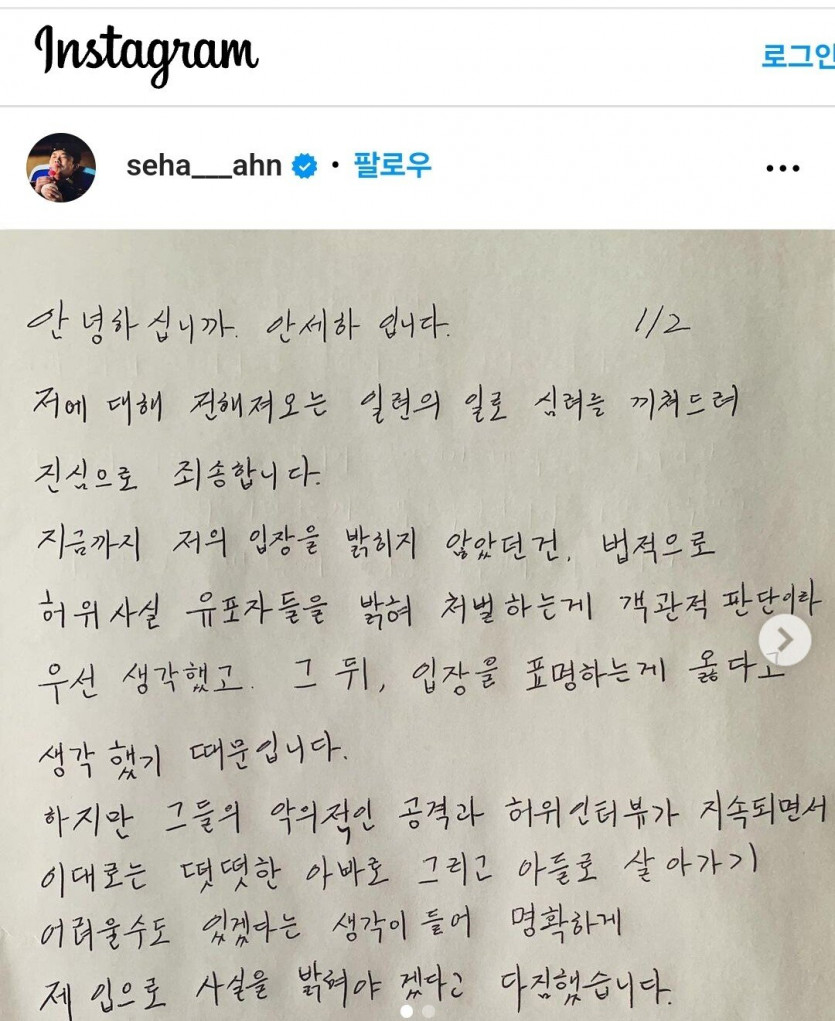 Instagram
로그인
seha___ahn • 팔로우
안녕하십니까. 안세하 입니다. 1/2
저에 대해 전해져오는 일련의 일로 심려를 끼쳐드려
진심으로 죄송합니다.
지금까지 저의 입장을 밝히지 않았던건, 법적으로
허위사실 유포자들을 밝혀 처벌하는게 객관적 판단이라
우선 생각했고. 그 뒤, 입장을 표명하는게 옳다고
생각했기 때문입니다.
하지만 그들의 악의적인 공격과 허위인터뷰가 지속되면서
이대로는 떳떳한 아빠로 그리고 아들로 살아가기
어려울수도 있겠다는 생각이 들어 명확하게
제 입으로 사실을 밝혀야 겠다고 다짐했습니다.